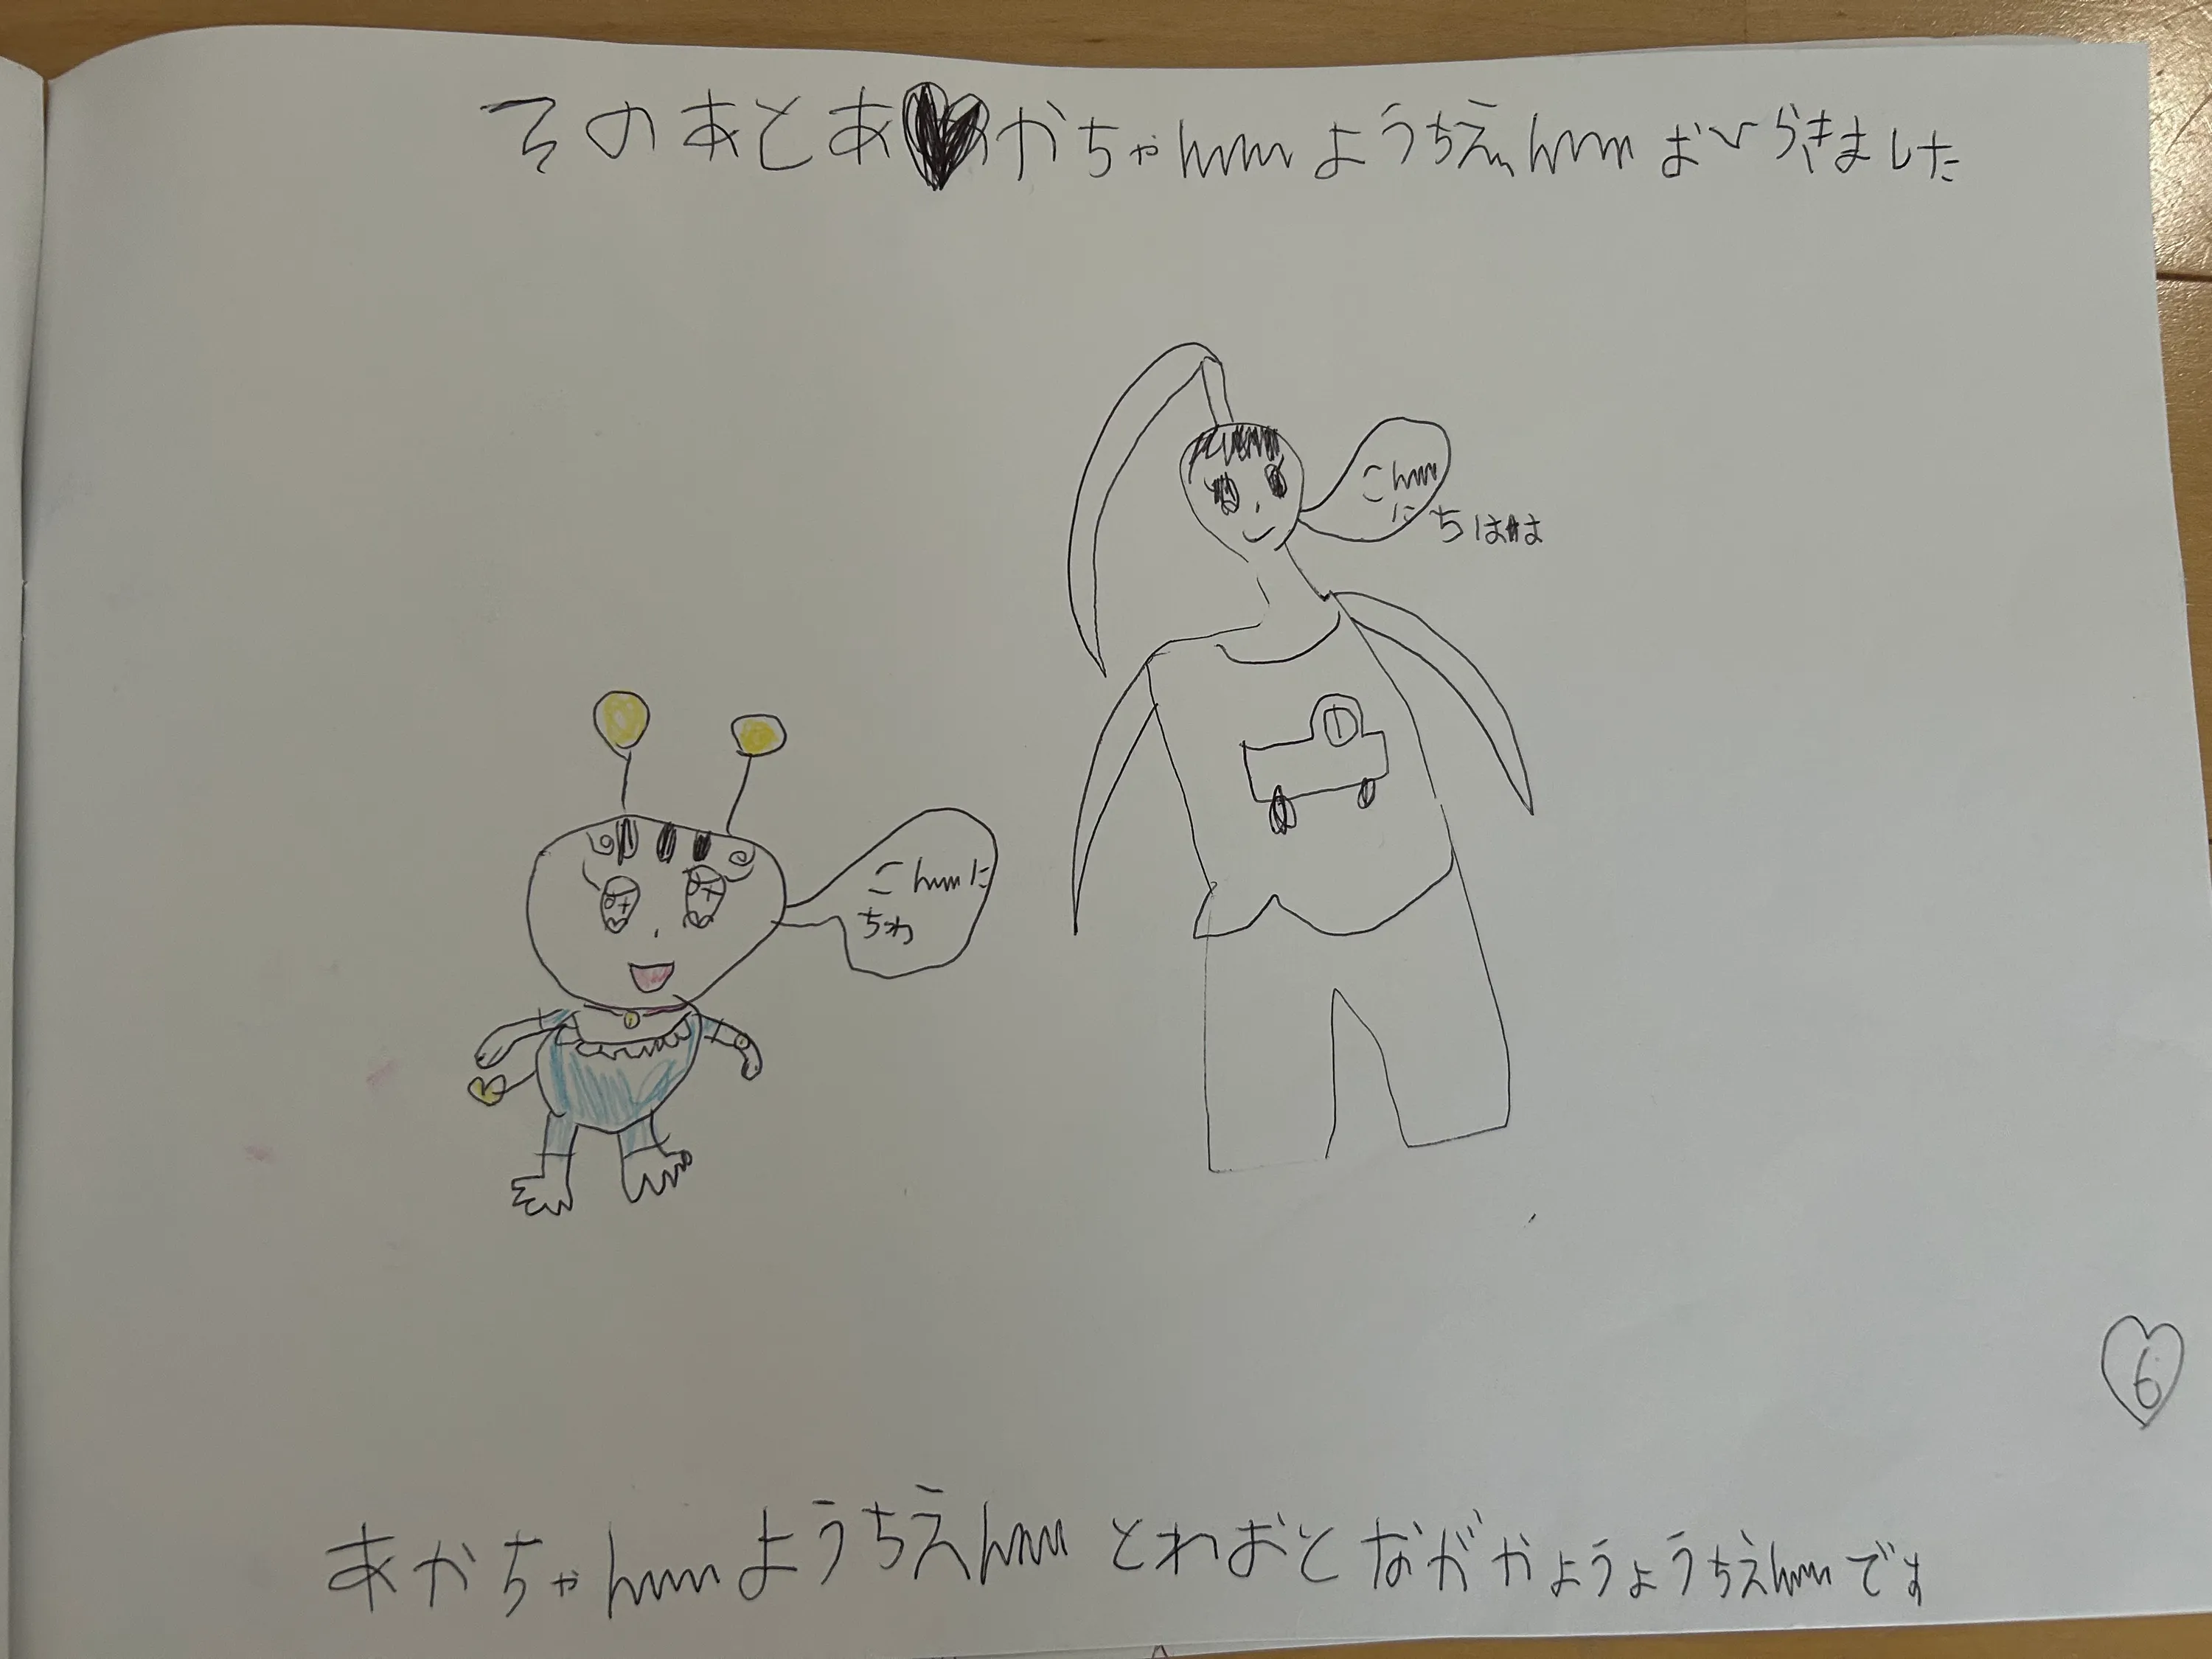 そのあとあかちゃんようちえんおひらきました
こん
にちはは
こんに
ちわ
6
あかちゃんようちえんとわおとながかようようちえんです